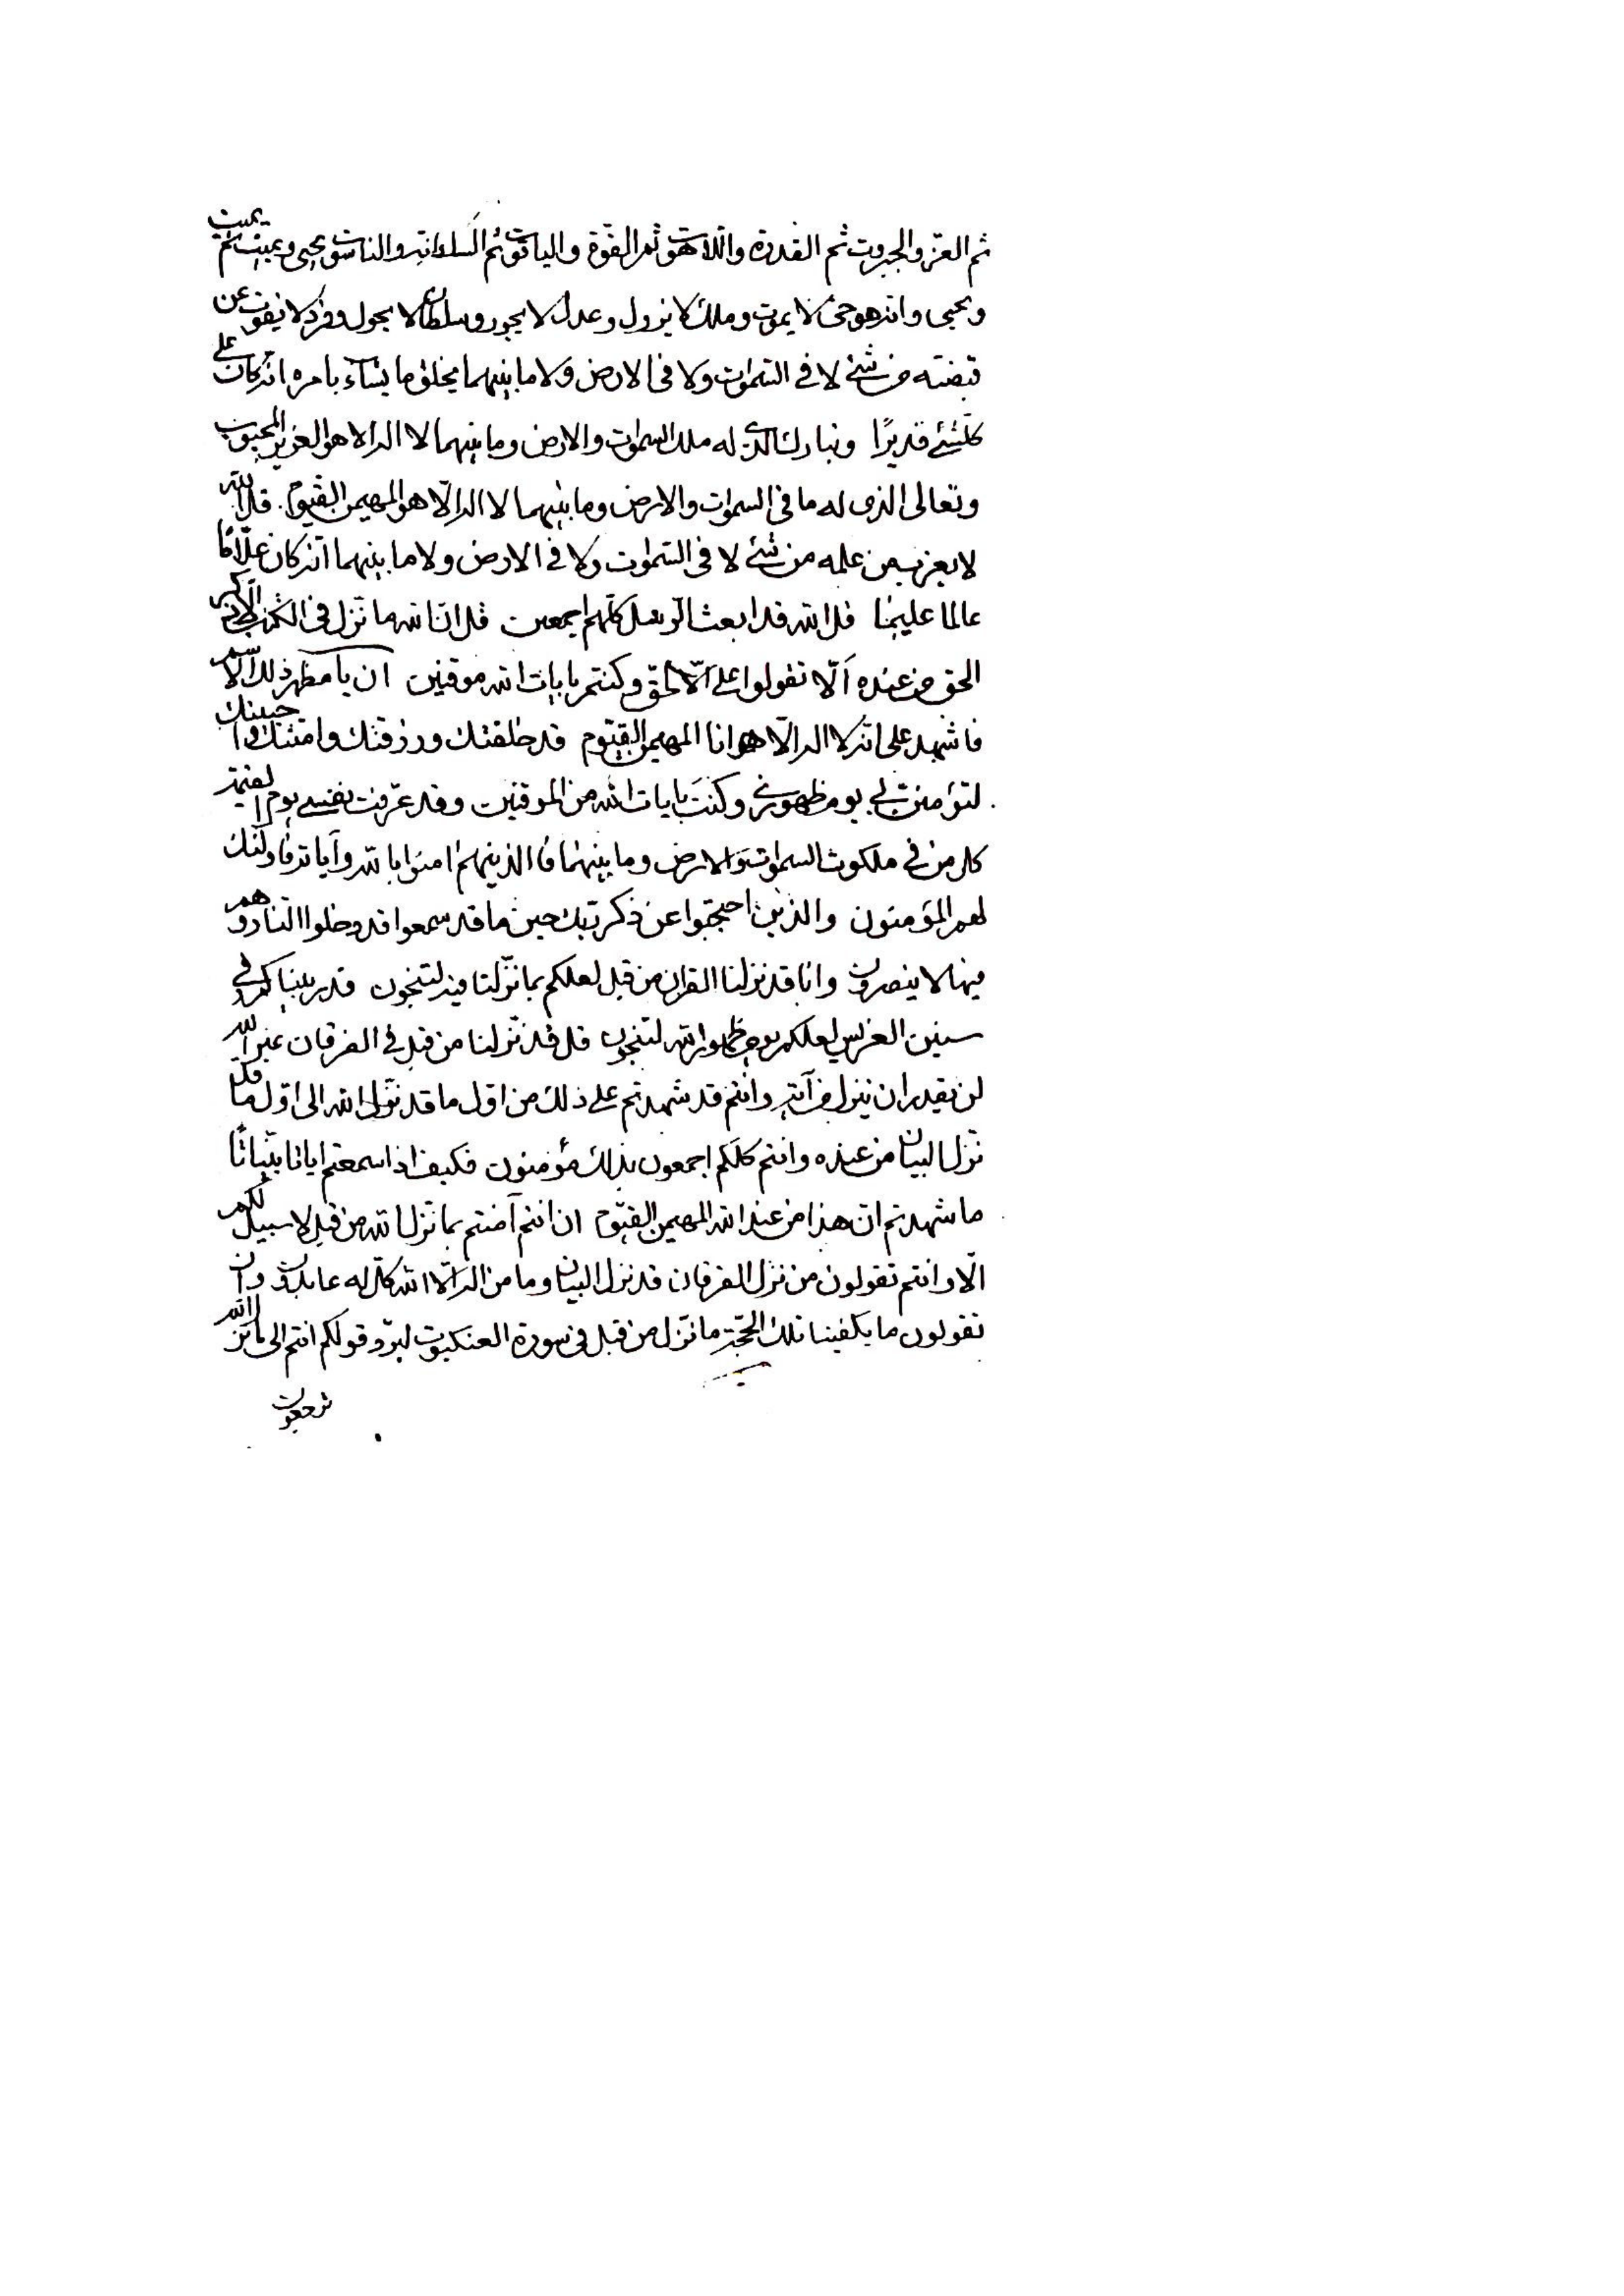 ثم العزّ والجبروت ثم القدرة واللاهوت ثم القوّة والياقوت ثم السلطنة والناسوت يحيى ويميت ثم يميت
ويحيى وانه هو حىّ لا يموت وملك لا يزول وعدل لا يجور وسلطان لا يحول وفرد لا يفوت عن
قبضته من شئ لا فى السموات ولا فى الارض ولا ما بينهما يخلق ما يشاء بامره انه كان على
كلشئ قديرًا وتبارك الذى له ملك السموات والارض وما بينهما لا اله الا هو العزيز المحبوب
وتعالى الذى له ما فى السموات والارض وما بينهما لا اله الّا هو المهيمن القيّوم قل الله
لا يعزب من علمه من شئ لا فى السموات ولا فى الارض ولا ما بينهما انه كان علّامًا
عالما عليمًا قل الله قد ابعث الرسل كلّهم اجمعين قل انّ الله ما نزّل فى الكتب الّا كبر
الحق من عنده ألّا تقولوا على الله الّا الحقّ وكنتم بايات الله موقنين ان يا مظهر ذلك الاسم
فاشهد على انه لا اله الّا هو انا المهيمن القيّوم قد خلقتك ورزقتك وامتّك واحييتك
لتؤمننّ بى يوم ظهورى وكنتَ بايات الله من الموقنين وقد عرّفت نفسى يوم القيمة
كل من فى ملكوت السموات والارض وما بينهما فاالذينهم امنوا بالله وآياته فاولئك
لهم المؤمنون والذين احتجبوا عن ذكر ربّك حين ما قد سمعوا قد دخلوا النار وهم
فيها لا ينصرون وانا قد نزلنا القران من قبل لعلكم بما نزّلنا فيه لتنجون قد ربيناكم فى
سنين الغرس لعلكم يوم ظهور الله لتنجون قل قد نزّلنا من قبل فى الفرقان غير الله
لن يقدر ان ينزل من آية وانتم قد شهدتم على ذلك من اول ما قد نزّل الله الى اوّل ما قد
نزل البيان من عنده وانتم كلكم اجمعون بذلك مؤمنون فكيف اذا سمعتم ايات بيّناتًا
ما شهدتم ان هذا من عند الله المهيمن القيّوم ان انتم آمنتم بما نزّل الله من قبل لا سبيل لكم
الّا وانتم تقولون من نزل الفرقان قد نزل البيان وما من اله الّا الله كلّ له عابدون وان
تقولون ما يكفينا تلك الحجّة ما نزّل من قبل فى سورة العنكبوت ليردّ قولكم انتم الى ما نزّل الله
ترجعون